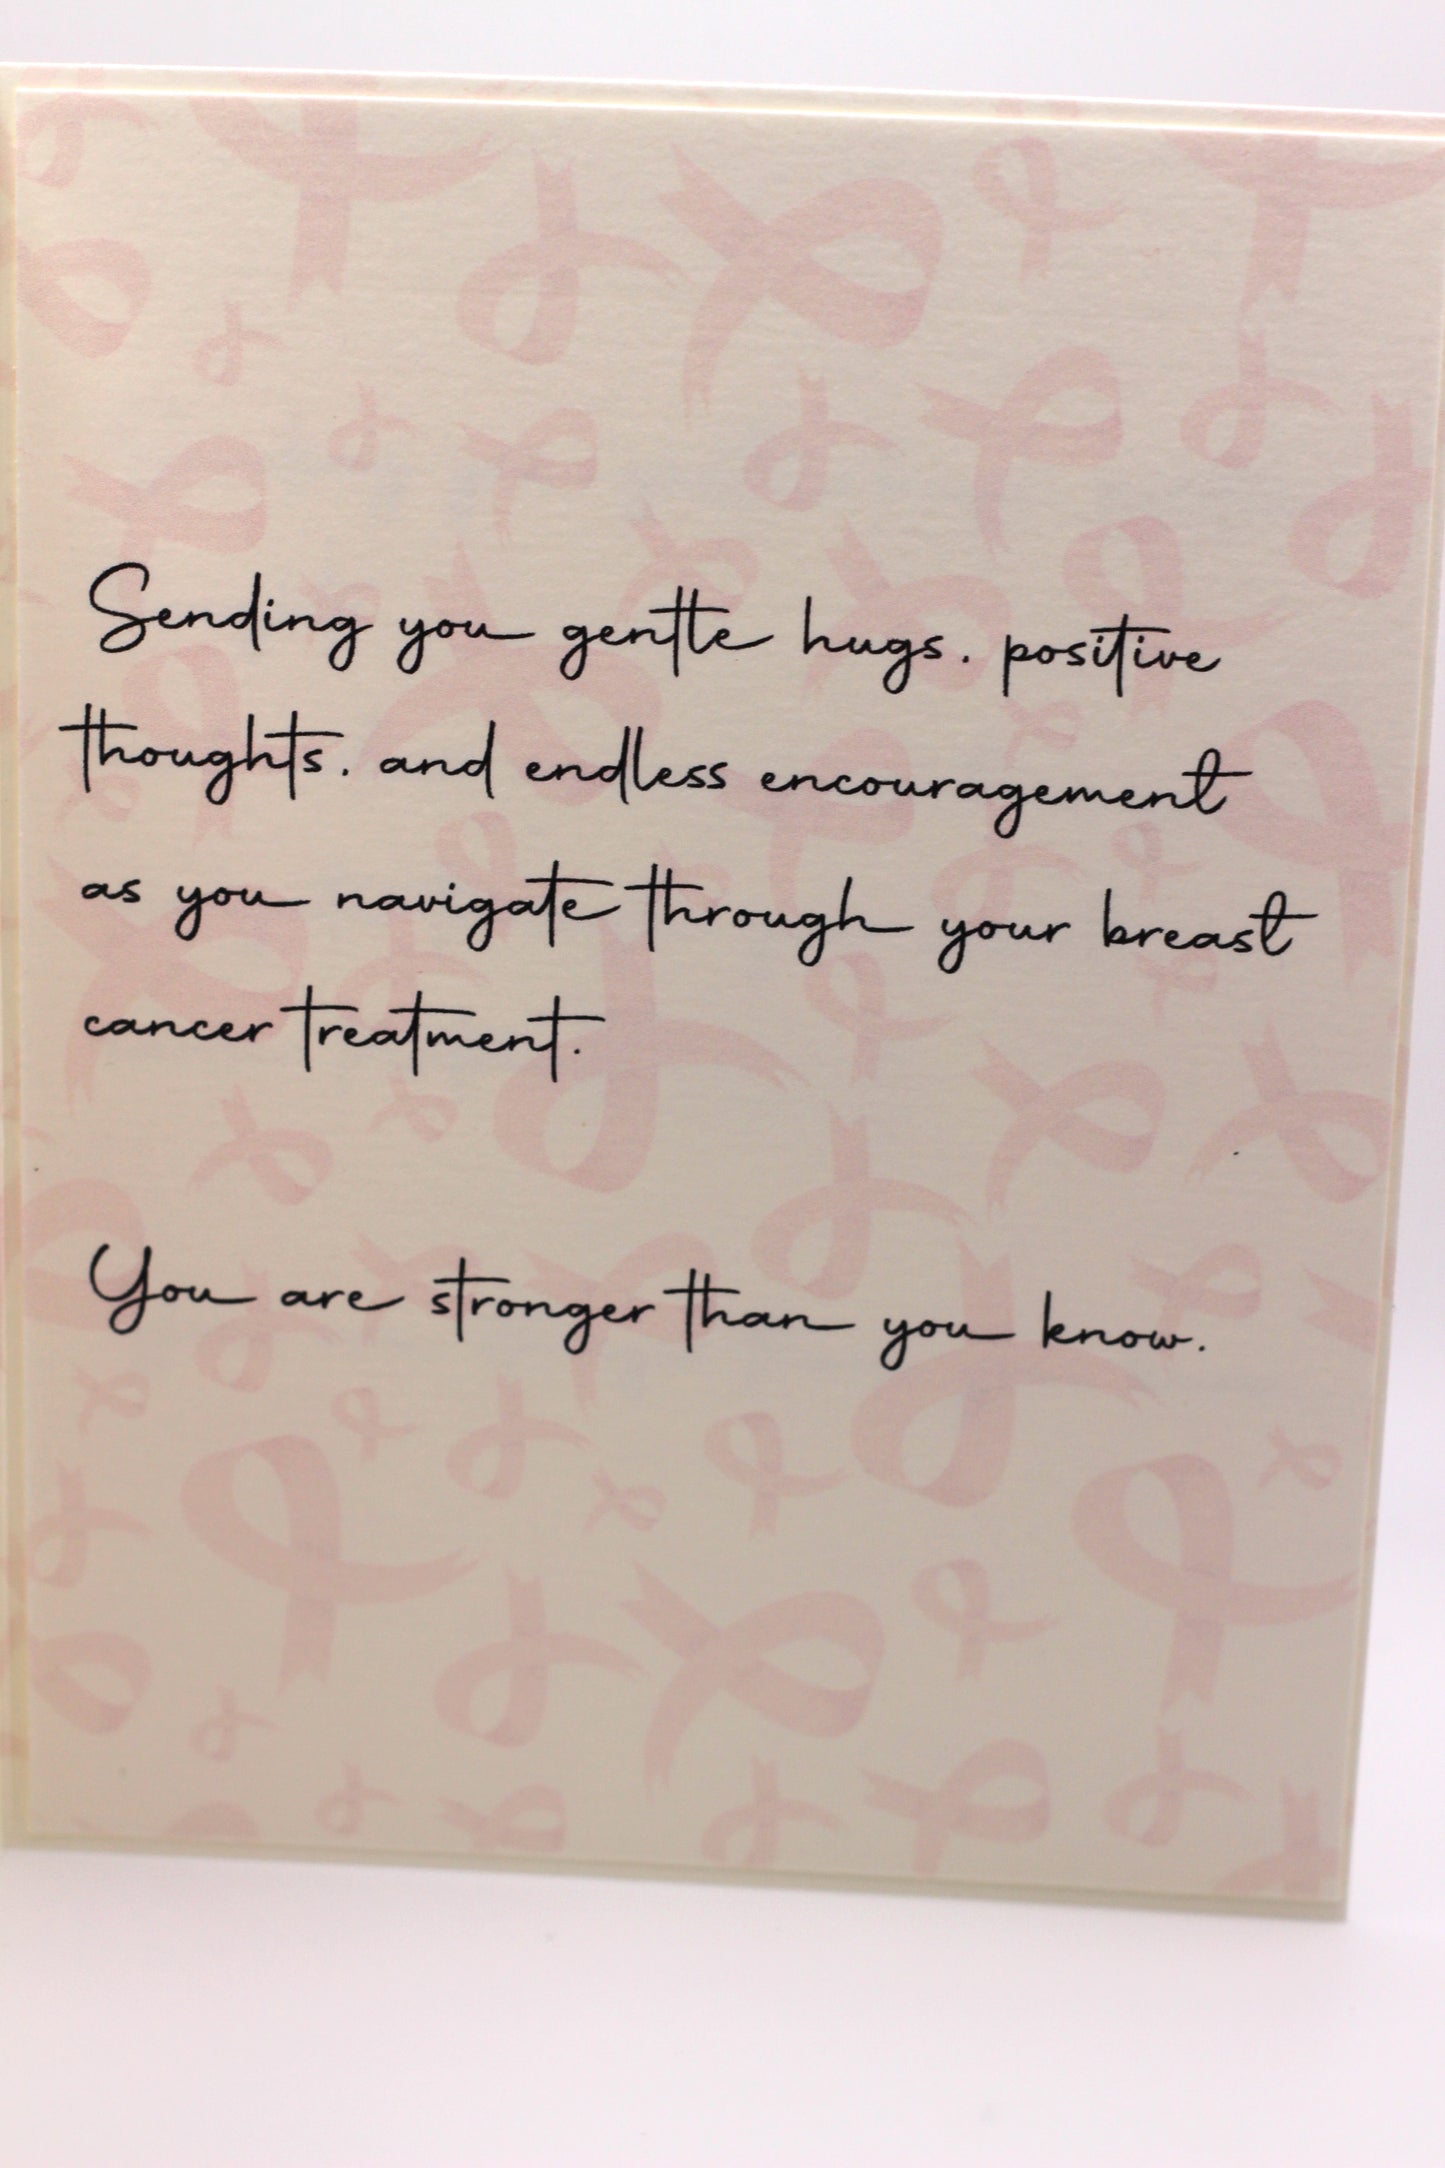 Sending you gentle hugs, positive
thoughts, and endless encouragement
as you navigate through your breast
cancer treatment.
You are stronger than you know.